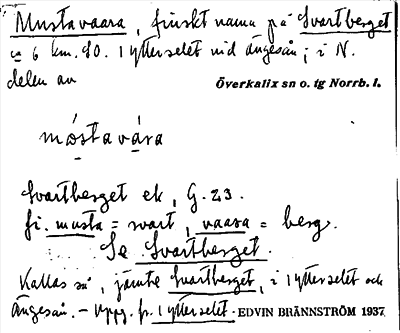 Mustavaara, finskt namn på Svartberget
ca 6 km. SO. Ytterselet vid Ängesån; i N.
delen av Överkalix sn o. tg Norrb. l.
móstavára
Svartberget ek, G. 23.
fi. musta = svart, vaara = berg.
Se Svartberget.
Kallas så, jämte Svartberget, i Ytterselet och
Ängesån. - Uppg. fr. Ytterselet. EDVIN BRÄNNSTRÖM 1937